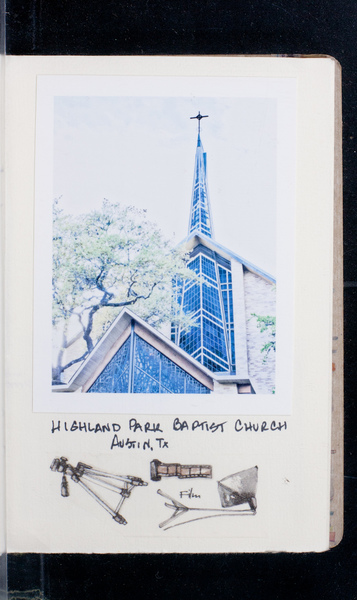 HIGHLAND PARK BAPTIST CHURCH
AUSTIN, TX
Film